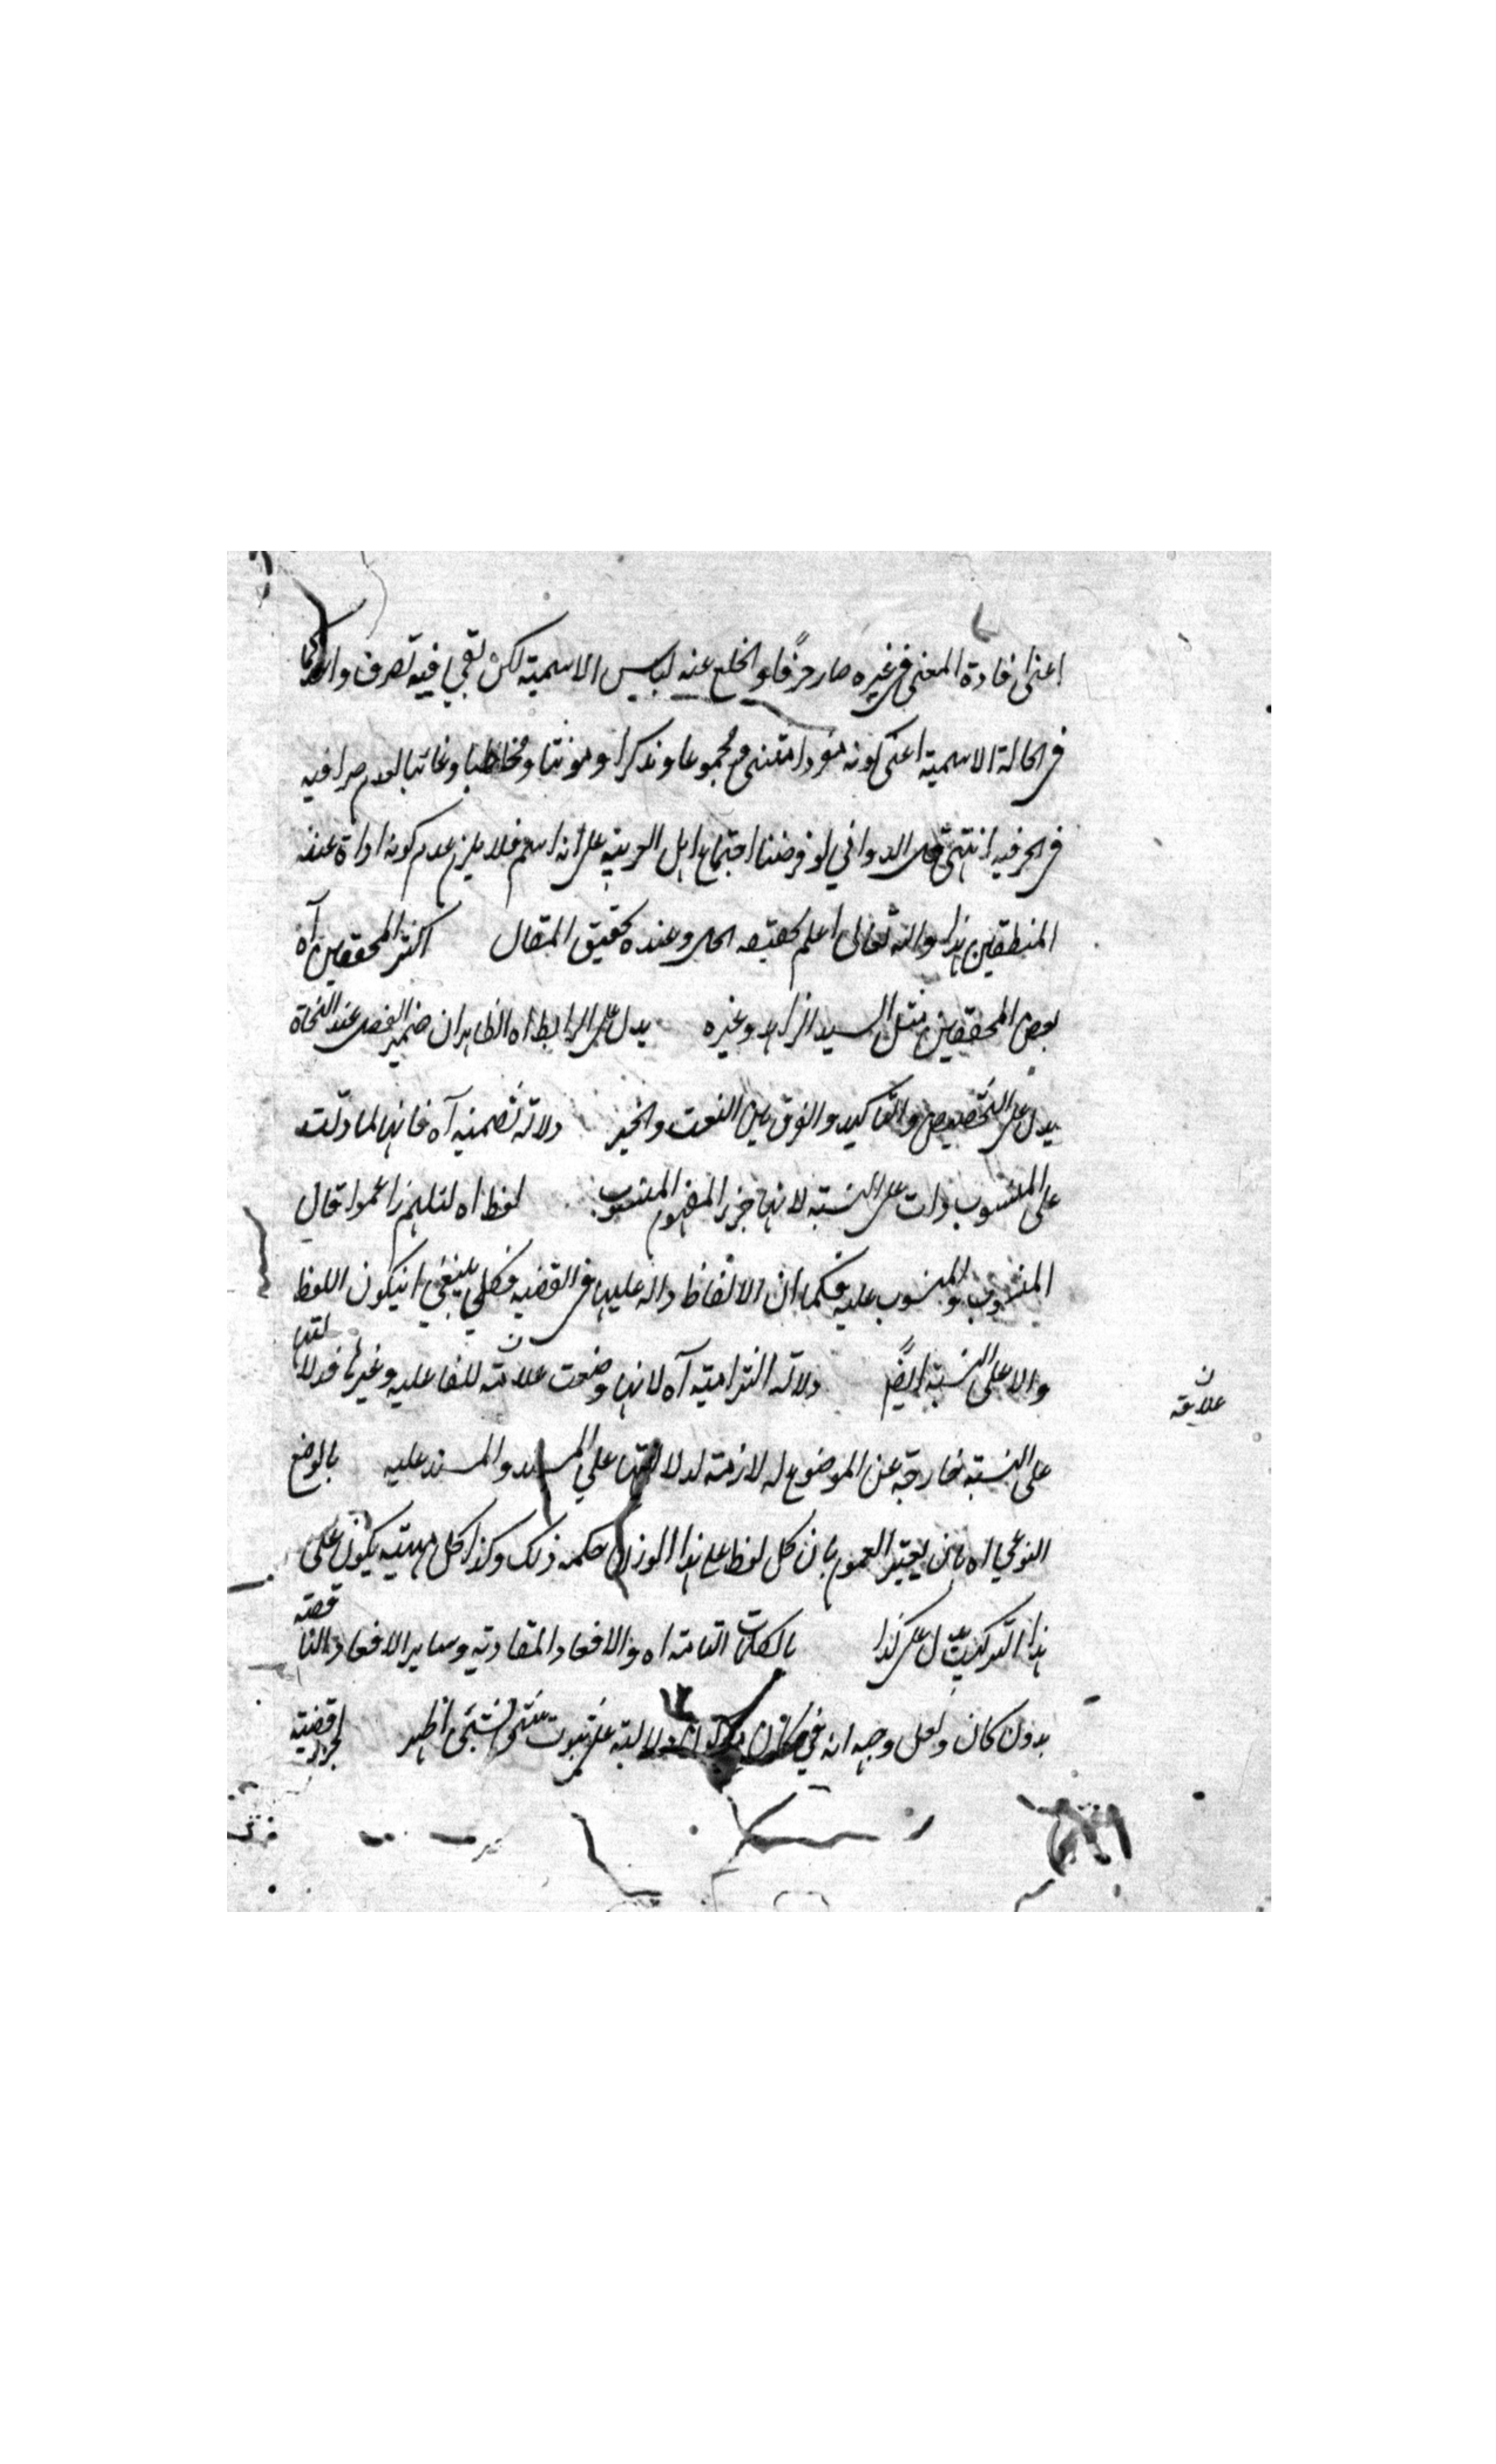 اعنى افادة المعنى فى غيره صار حرفًا وانخلع عنه لباس الاسمية لكن بقى فيه تصرف واحد كما
فى الحالة الاسمية اعنى كونه مفردا مثنى ومجموعا ومذكرا ومونثا ومخاطبا وغائبا لعدم
فى الحرفيه انتهى قال الدوانى لو فرضنا اجتماع اهل العربيه على انه اسم فلا يلزم عدم كونه اداة عند
المنطقين هذا والله تعالى اعلم بحقيقه الحال وعنده تحقيق المقال اكثر المحققين آه
بعض المحققين مثل السيد الزاهد وغيره يدل على الرابط اه الظاهر ان ضمير الفصل عند النحاة
يدل على التخصيص والتاكيد والفرق بين النعت والخبر دلالة تضمنيه آه فانها لما دلت
على المنسوب دلت على النسبة لانها جزء المفهوم المنسوب لفظ اه لئلا زعموا قال
المنسوب والمنسوب عليه فكما ان الالفاظ داله عليها فى القضيه ينبغى انيكون اللفظ
دالا على النسبة ايضًا دلالة التزامية آه لانها وضعت علامة للفاعليه وغيرها فدلالتها
علاقة
على النسبة خارجة عن الموضوع له لازمة لدلالتها على المسند والمسند عليه بالوضع
النوعي اه بان يعتبر العموم بان كل لفظ على هذا الوزن حكمه ذلك وكذا كل هيئيه يكون على
هذا التركيب يدل على كذا بالكلمات التامة اه والافعال المتقاربه وساير الافعال الناقصة
بدون كان ولعل وجهه انه دلالته على ثبوت شى لشى اظهر قضية